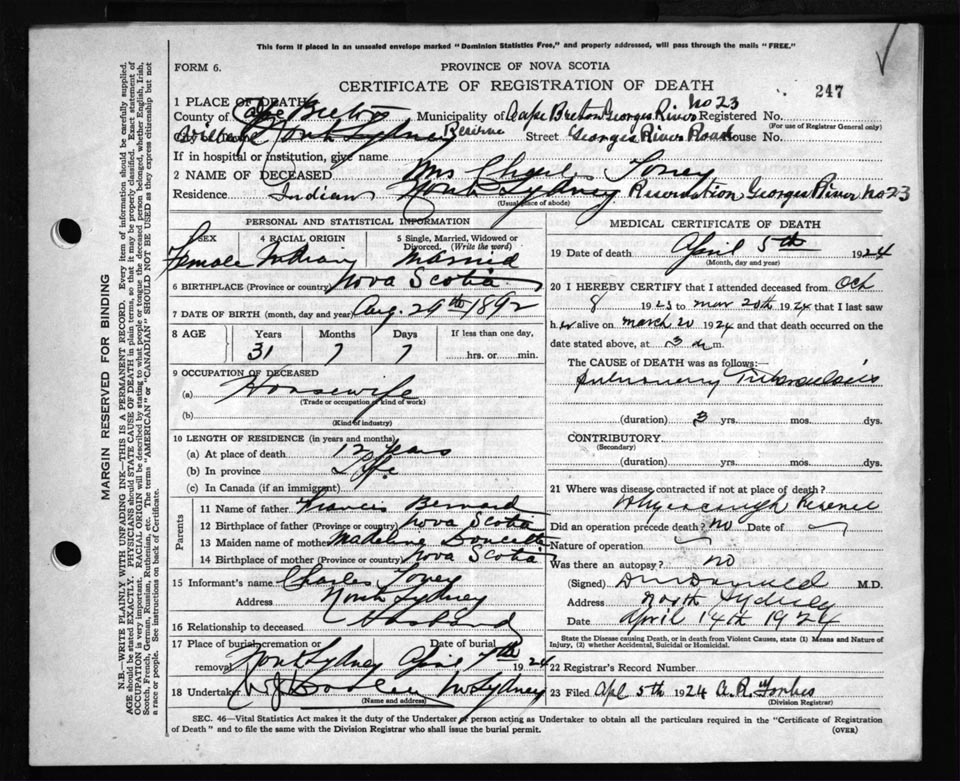 This form if placed in an unsealed envelope marked "Dominion Statistics Free," and properly addressed, will pass through the mails "FREE."
FORM 6.
PROVINCE OF NOVA SCOTIA
CERTIFICATE OF REGISTRATION OF DEATH
247
1 PLACE OF DEATH
County of Cape Breton Municipality of Cape Breton Georges River No 23 Registered No.
(For use of Registrar General only)
North Sydney Reserve Street Georges River Road House No.
If in hospital or institution, give name
2 NAME OF DECEASED Mrs Charles Toney
Residence Indian North Sydney Georges River No 23
(Usual place of abode)
PERSONAL AND STATISTICAL INFORMATION
3 SEX 4 RACIAL ORIGIN 5 Single, Married, Widowed or Divorced. (Write the word)
Female Indian Married
6 BIRTHPLACE (Province or country) Nova Scotia
7 DATE OF BIRTH (month, day and year) Aug. 29th 1892
8 AGE Years Months Days If less than one day,
31 7 7 hrs. or min.
9 OCCUPATION OF DECEASED
(a) Housewife
(Trade or occupation or kind of work)
(b)
(Kind of industry)
10 LENGTH OF RESIDENCE (in years and months)
(a) At place of death 12 years
(b) In province Life
(c) In Canada (if an immigrant)
Parents
11 Name of father Francis Bernard
12 Birthplace of father (Province or country) Nova Scotia
13 Maiden name of mother Madeline Doucette
14 Birthplace of mother (Province or country) Nova Scotia
15 Informant's name Charles Toney
Address North Sydney
16 Relationship to deceased Husband
17 Place of burial, cremation or removal Date of burial
North Sydney April 7th 1924
18 Undertaker No Sydney
(Name and address)
MEDICAL CERTIFICATE OF DEATH
19 Date of death April 5th 1924
(Month, day and year)
20 I HEREBY CERTIFY that I attended deceased from Oct
8 1923 to Mar 20th 1924 that I last saw
her alive on March 20 1924 and that death occurred on the
date stated above, at 3 m.
The CAUSE of DEATH was as follows:
Pulmonary Tuberculosis
(duration) 3 yrs. mos. dys.
CONTRIBUTORY
(Secondary)
(duration) yrs. mos. dys.
21 Where was disease contracted if not at place of death?
Whycocough Reserve
Did an operation precede death? no Date of
Nature of operation
Was there an autopsy? no
(Signed) M.D.
Address North Sydney
Date April 14th 1924
State the Disease causing Death, or in death from Violent Causes, state (1) Means and Nature of Injury, (2) whether Accidental, Suicidal or Homicidal.
22 Registrar's Record Number
23 Filed Apl 5th 1924 A. R. Forbes
(Division Registrar)
SEC. 46—Vital Statistics Act makes it the duty of the Undertaker or person acting as Undertaker to obtain all the particulars required in the "Certificate of Registration
of Death" and to file the same with the Division Registrar who shall issue the burial permit.
(OVER)
MARGIN RESERVED FOR BINDING
N.B.—WRITE PLAINLY WITH UNFADING INK—THIS IS A PERMANENT RECORD. Every item of information should be carefully supplied.
AGE should be stated EXACTLY. PHYSICIANS should STATE CAUSE OF DEATH in plain terms, so that it may be properly classified. Exact statement of
OCCUPATION is very important. RACIAL ORIGIN will be described by stating to what people or tongue the deceased person belonged, whether English, Irish,
Scotch, French, German, Russian, Ruthenian, etc. The terms "AMERICAN" or "CANADIAN" SHOULD NOT BE USED as they express citizenship but not
a race or people. See instructions on back of Certificate.